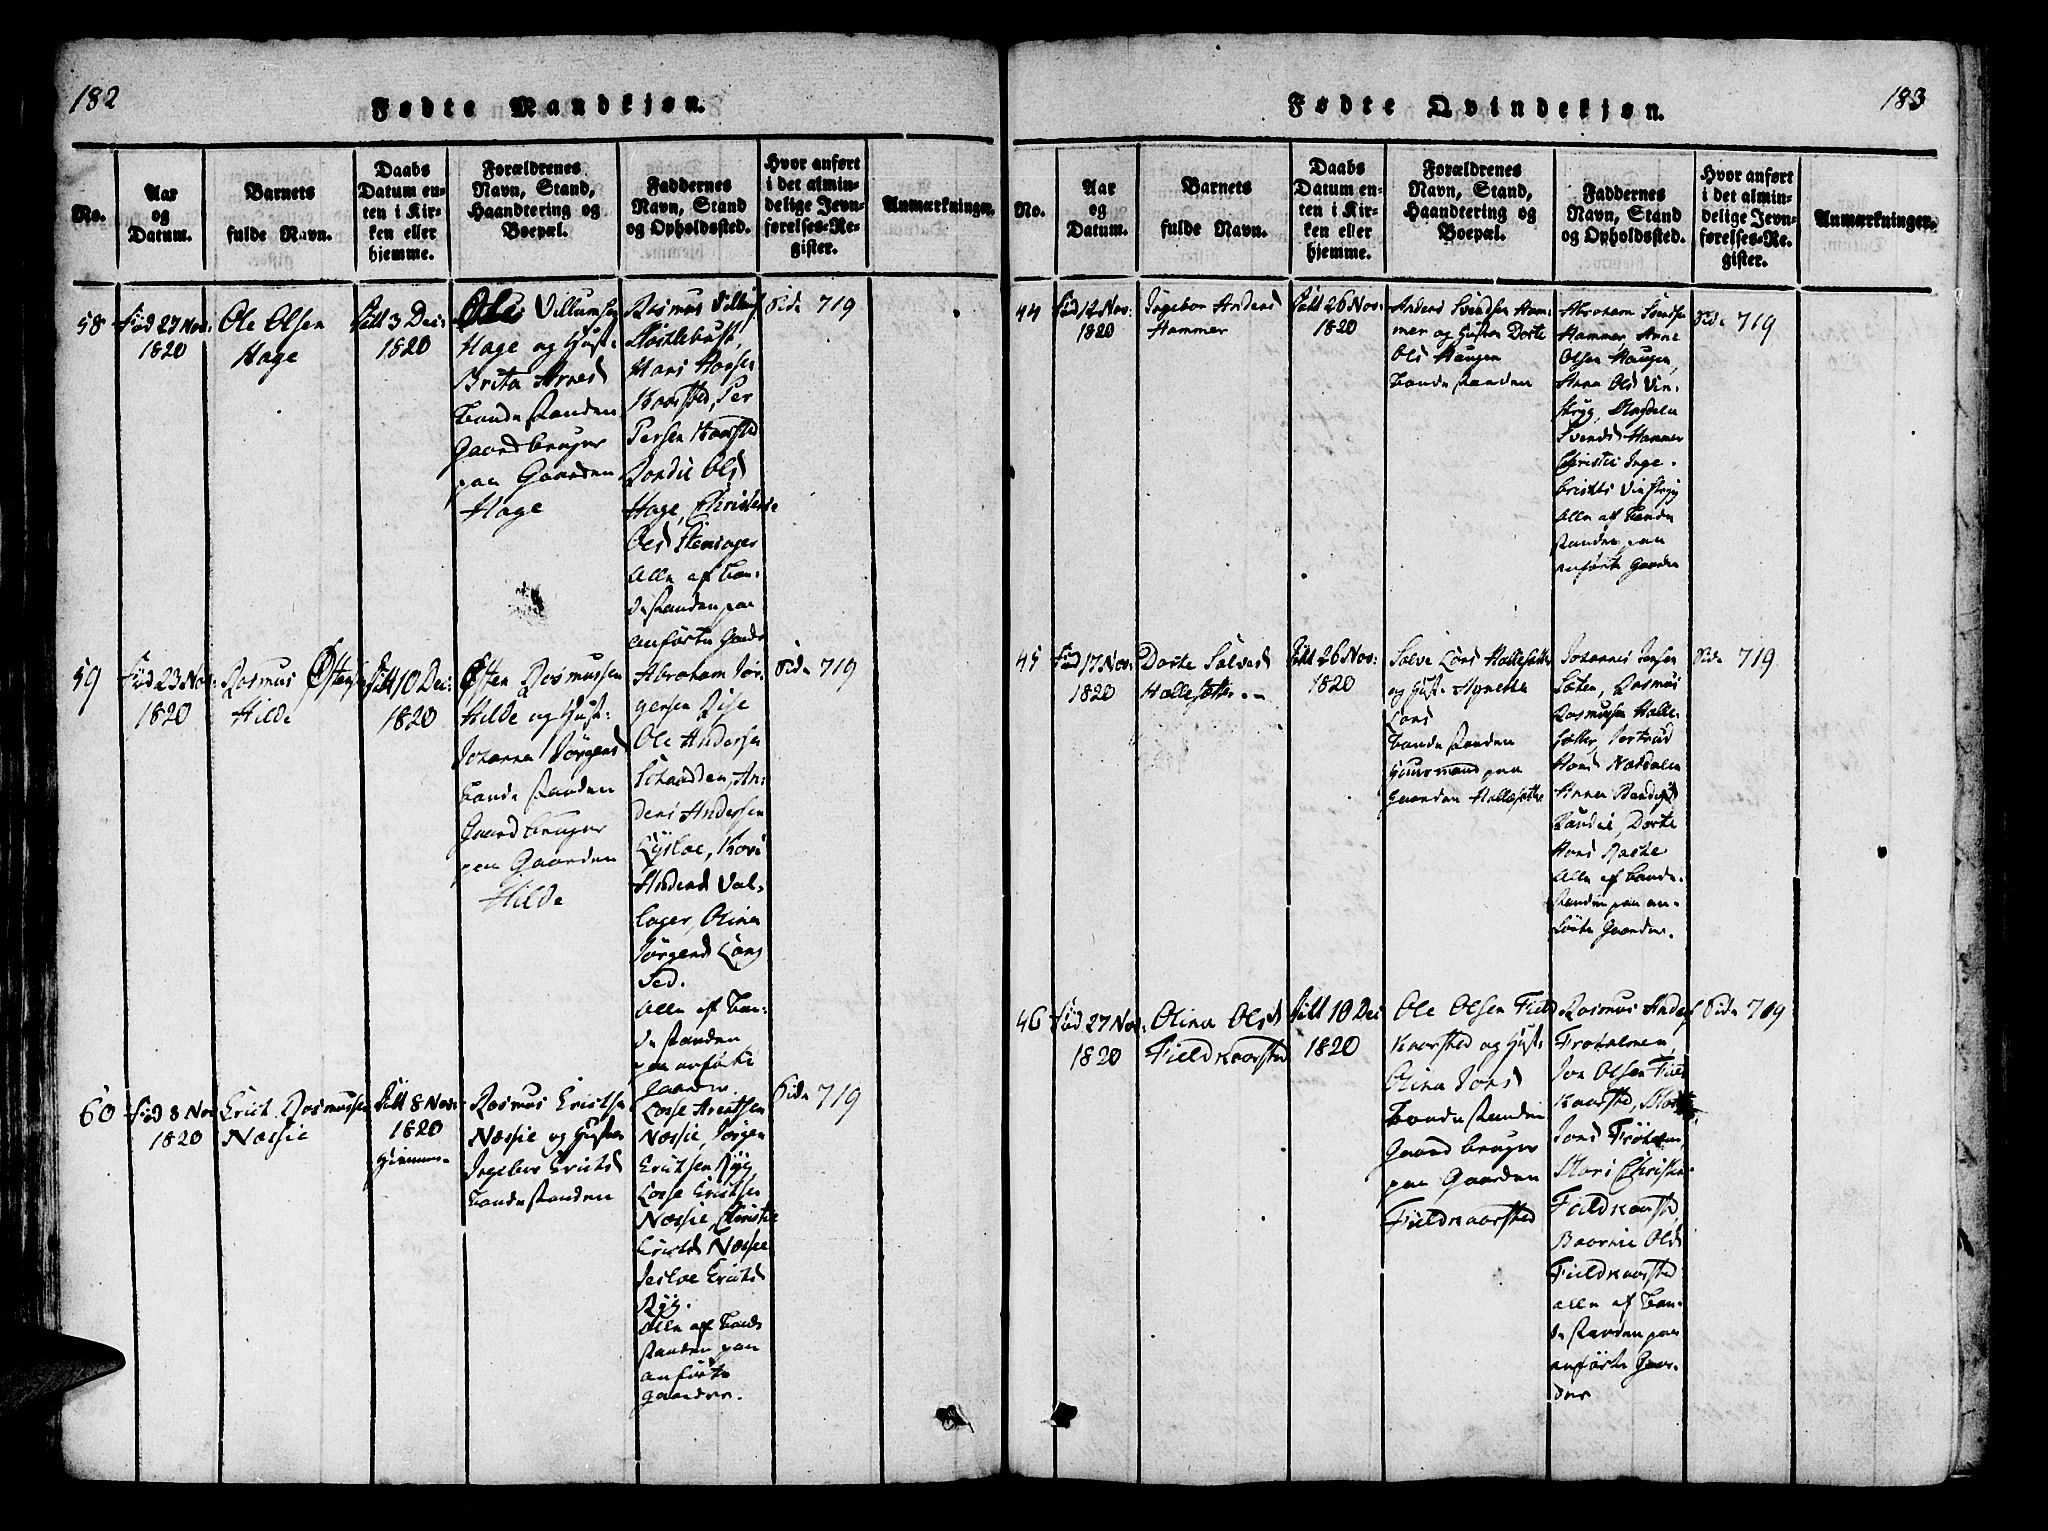 182
Fødte Mandkjøn.
No.
Aar
og
Datum.
Barnets
fulde Navn.
Daabs
Datum en-
ten i Kir-
ken eller
hjemme.
Forældrenes
Navn, Stand,
Haandtering og
Boepæl.
Faddernes
Navn, Stand
og Opholdssted.
Hvor anført
i det almin-
delige Jevn-
førelses-Re-
gister.
Anmærkninger.
58
Fød 27 Nov:
1820
Ole Olsen
Hage
3 Dec:
1820
Ole Villumsen
Hage og Hust:
Brita Arnesd
Bondestanden
Gaardbruger
paa Gaarden
Hage
Rasmus
Hans Hansen
Kaarsted, Per
Persen Kaarsted
Randie Olsd
Hage, Christense
Olsd
Alle af Bon:
destanden paa
anførte Gaarde
Side 719
59
Fød 23 Nov:
1820
Rasmus Østensen
Hilde
10 Dec:
1820
Østen Rasmussen
Hilde og Hust:
Johanna Jørgensd
Bondestanden
Gaardbruger
paa Gaarden
Hilde
Abraham Jør
gensen Rise
Ole Andersen
An:
ders Andersen
Kari
Andersd Val-
lager, Olina
Jørgensd Lang
sed.
Alle af Bon:
destanden
paa anførte
gaarde
Side 719
60
Fød 8 Nov
1820
Erich Rasmussen
Næssie
8 Nov:
1820
Hiemme.
Rasmus Erichsen
Næssie og Hustrue
Ingebor Erichsd
Bondestanden
Lasse Arentsen
Næssie, Jørgen
Erichsen Ryg,
Lasse Erichsen
Næssie, Christie
Erichsd Næssie
Erichsd
Ryg.
Alle af Bonde
standen paa
anførte
gaarder.
Side 719
183
Fødte Qvindekjøn.
No.
Aar
og
Datum.
Barnets
fulde Navn.
Daabs
Datum en-
ten i Kir-
ken eller
hjemme.
Forældrenes
Navn, Stand,
Haandtering og
Boepæl.
Faddernes
Navn, Stand
og Opholdssted.
Hvor anført
i det almin-
delige Jevn-
førelses-Re-
gister.
Anmærkninger.
44
Fød 12 Nov:
1820
Ingebor Andersd
Hammer
26 Nov:
1820
Anders Svendsen Ham-
mer og Hustru Dorte
Olsd Haugen
Bondestanden
Abraham
Hammer, Arne
Olsen Haugen,
Anna Olsd Vin-
stryg, Magdele
Svendsd Hammer
Christie Inge-
brictsd Vinstryg
Alle af Bonde
standen paa
anførte Gaarde
Side 719
45
Fød 17 Nov:
1820
Dorte Salvesd
Hallesetter.
26 Nov:
1820
Salve Larsd Hallesetter
og Hust. Agnethe
Larsd
Bondestanden
Huusmand paa
Gaarden Hallesette
Johannes Jensen
Sæten, Rasmus
Rasmussen Halle-
setter, Jertrud
Hansd Nordalen
Anna
Randie, Dorte
Hansd
Alle af Bonde-
standen paa an-
førte Gaarde.
Side 719
46
Fød 27 Nov:
1820
Olina Olsd
Fieldkaarsted
10 Dec
1820
Ole Olsen Field
kaarsted og Hust.
Olina Jonsd
Bondestanden
Gaardbruger
paa Gaarden
Fieldkaarsted
Rasmus Anders
Frøholmen,
Jon Olsen Field
kaarsted,
Jonsd
Mari Christen
Fieldkaarsted,
Olsd
Fieldkaarsted
alle af Bon-
destanden paa
anførte Gaar-
der
Side 719